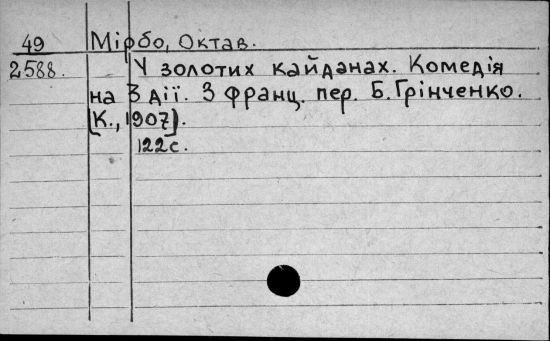 49 Мірбо, Октав.
2588. У золотих кайданах. Комедія
на 3 дії. З франц. пер. Б. Грінченко.
[К., 1907].
122 с.